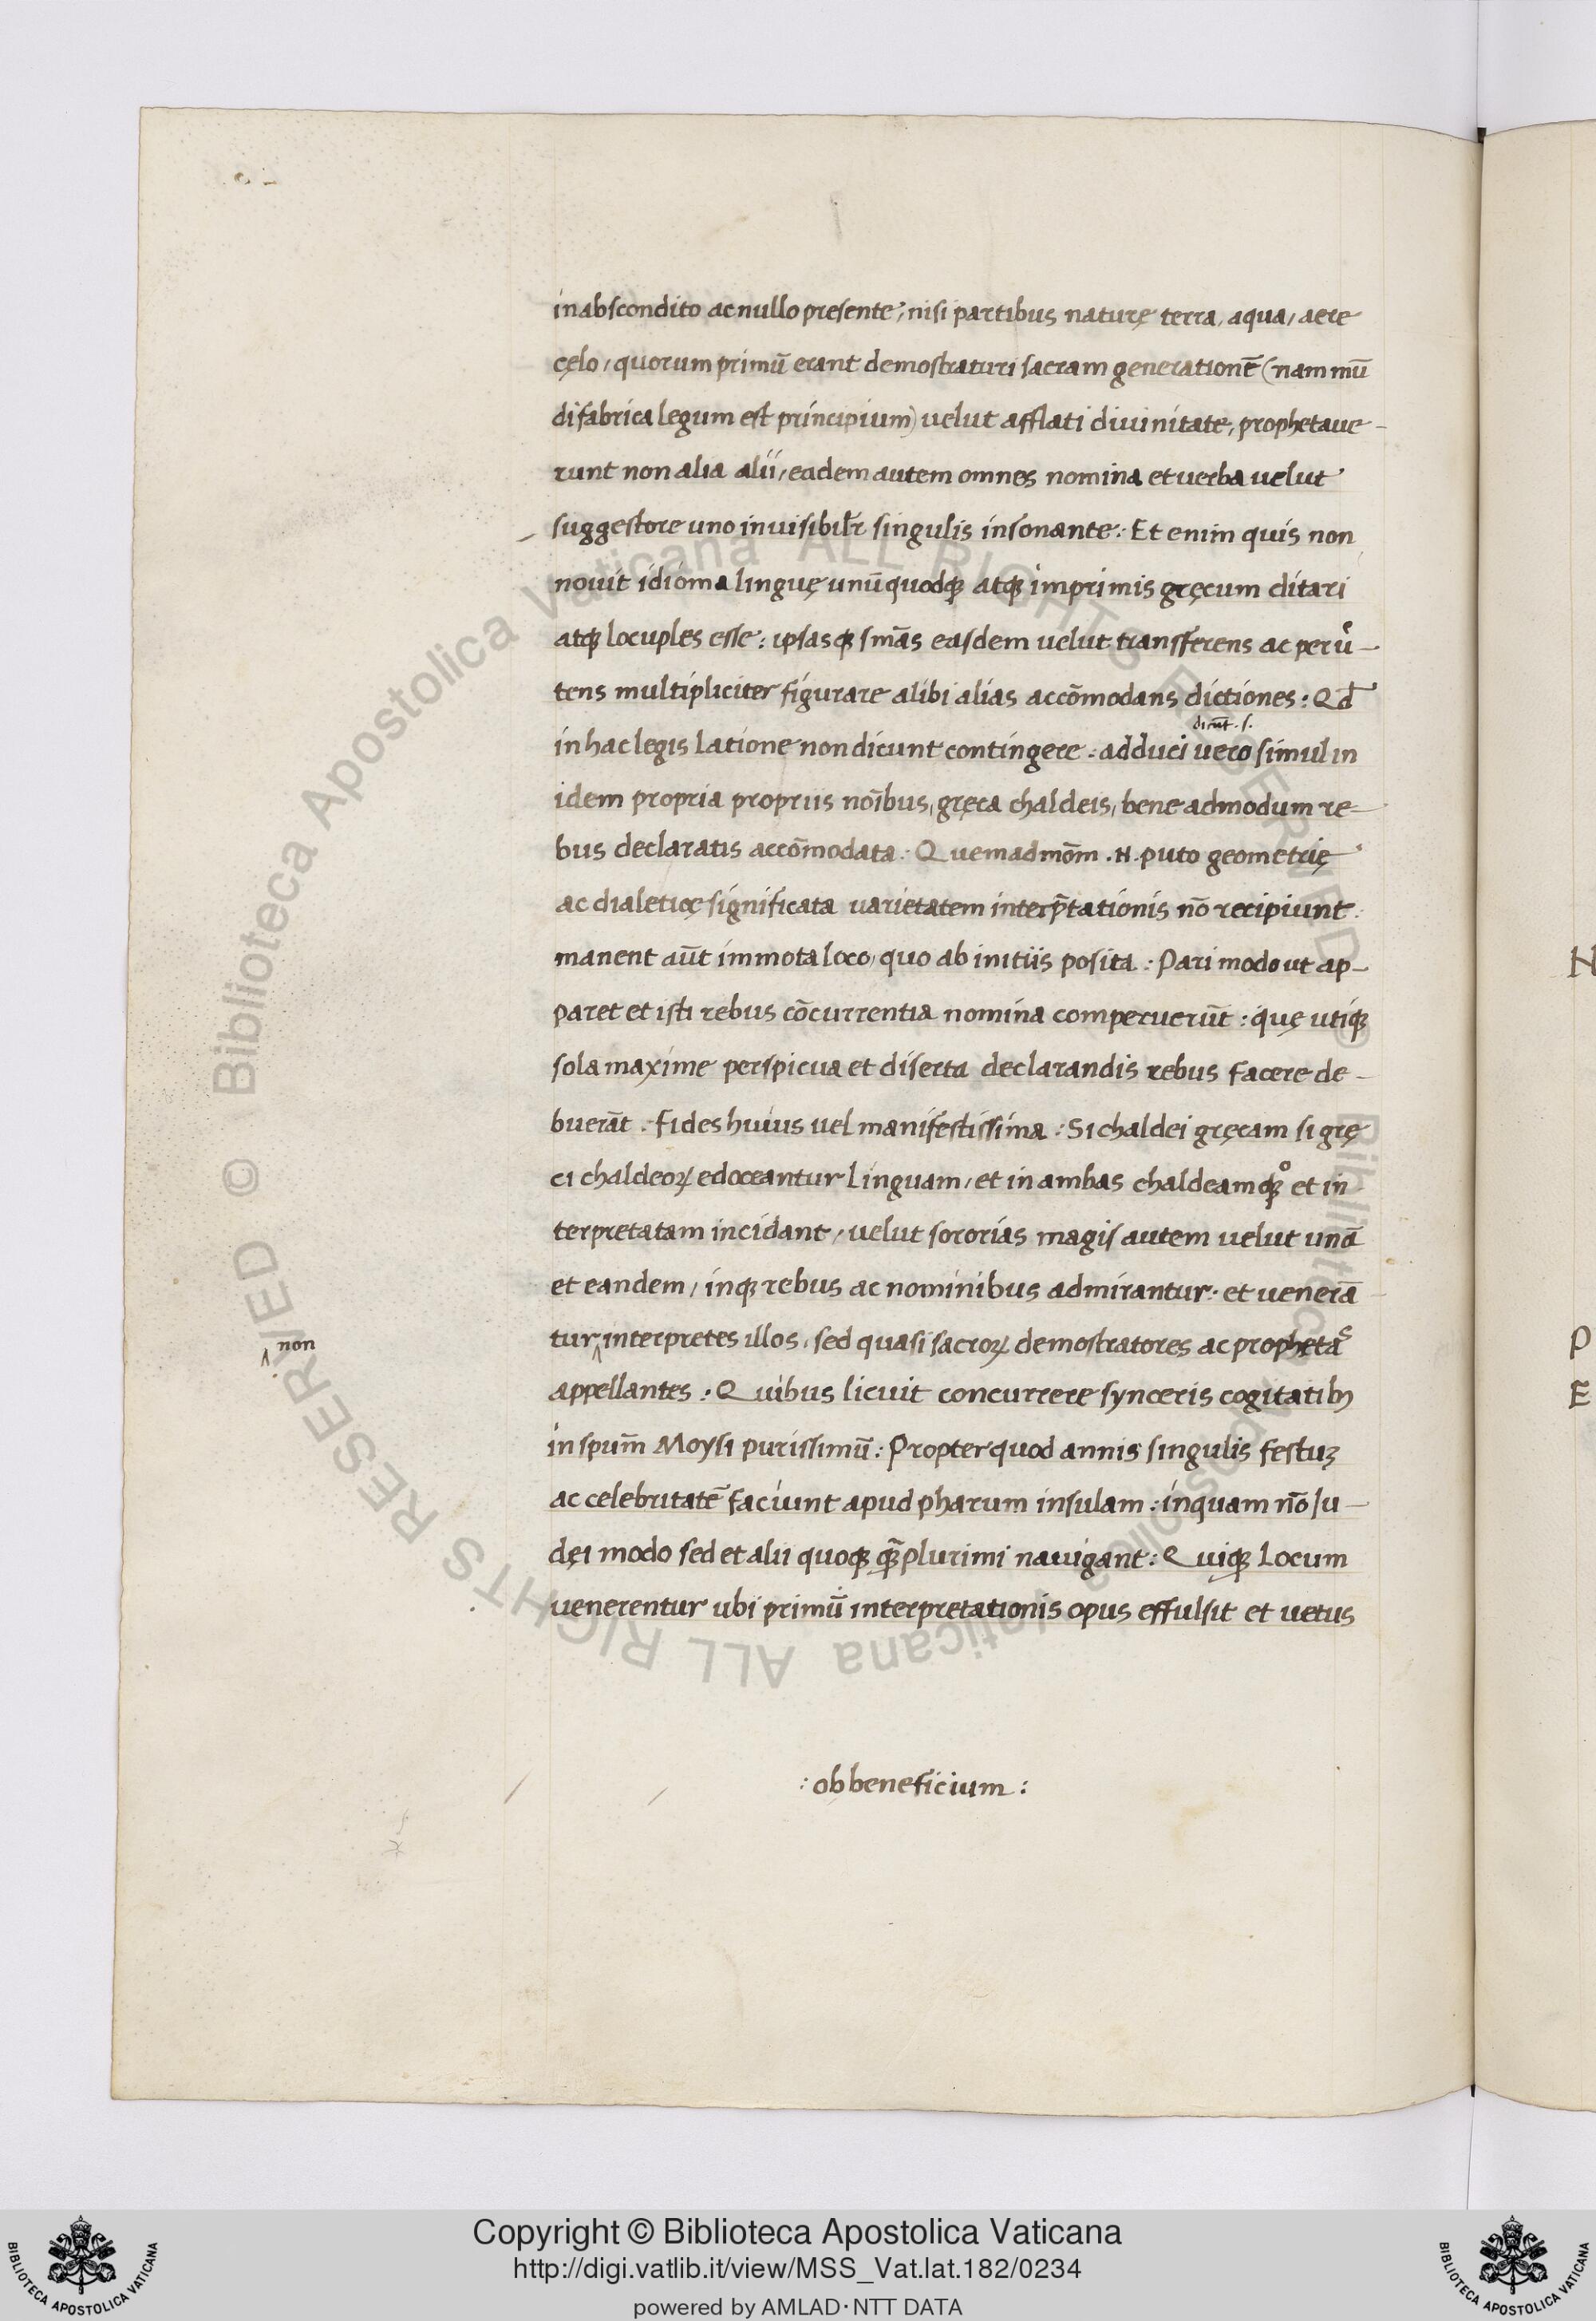 in abscondito ac nullo presente, nisi partibus naturę terra, aqua, aere
cęlo, quorum primū erant demostraturi sacram generationē (nam mū
di fabrica legum est principium) velut afflati divinitate, prophetave-
runt non alia alii, eadem autem omnes nomina et verba velut
suggestore uno invisibilr̄ singulis insonante: Et enim quis non
novit idioma linguę unūquodq; atq; imprimis gręcum ditari
atq; locuples esse: ipsasq; sm̄as easdem velut transferens ac per v̓-
tens multipliciter figurare alibi alias accōmodans dictiones: Qd̄
dicūt .s.
in hac legis latione non dicunt contingere: adduci vero simul in
idem propria propriis noī̄bus, gręca chaldeis, bene admodum re-
bus declaratis accōmodata. Quemadmōm .N. puto geometrię
ac dialeticę significata varietatem interp̄tationis nō recipiunt.
manent aūt immota loco, quo ab initiis posita: Pari modo ut ap-
paret et isti rebus cōcurrentia nomina compererūt: quę utiq;
sola maxime perspicua et diserta declarandis rebus facere de-
buerāt. Fides huius vel manifestissima: Si chaldei gręcam si grę
ci chaldeoꝝ edoceantur linguam, et in ambas chaldeamq; et in
terpretatam incidant, velut sororias magis autem velut unā
et eandem, inq; rebus ac nominibus admirantur. et venerā
non
tur interpretes illos, sed quasi sacroꝝ demostratores ac prophetas
appellantes. Quibus licuit concurrere synceris cogitatibȝ
in spum̄ Moysi purissimū: Propter quod annis singulis festuȝ
ac celebritatē faciunt apud pharum insulam: in quam nō Iu-
dęi modo sed et alii quoq; q̄plurimi navigant: Quiq; Locum
venerentur ubi primū interpretationis opus effulsit et vetus
: ob beneficium :
N
P
E
© Biblioteca Apostolica Vaticana ALL RIGHTS RESERVED © Biblioteca Apostolica Vaticana ALL RIGHTS RESERVED
BIBLIOTECA APOSTOLICA VATICANA
Copyright © Biblioteca Apostolica Vaticana
http://digi.vatlib.it/view/MSS_Vat.lat.182/0234
powered by AMLAD·NTT DATA
BIBLIOTECA APOSTOLICA VATICANA